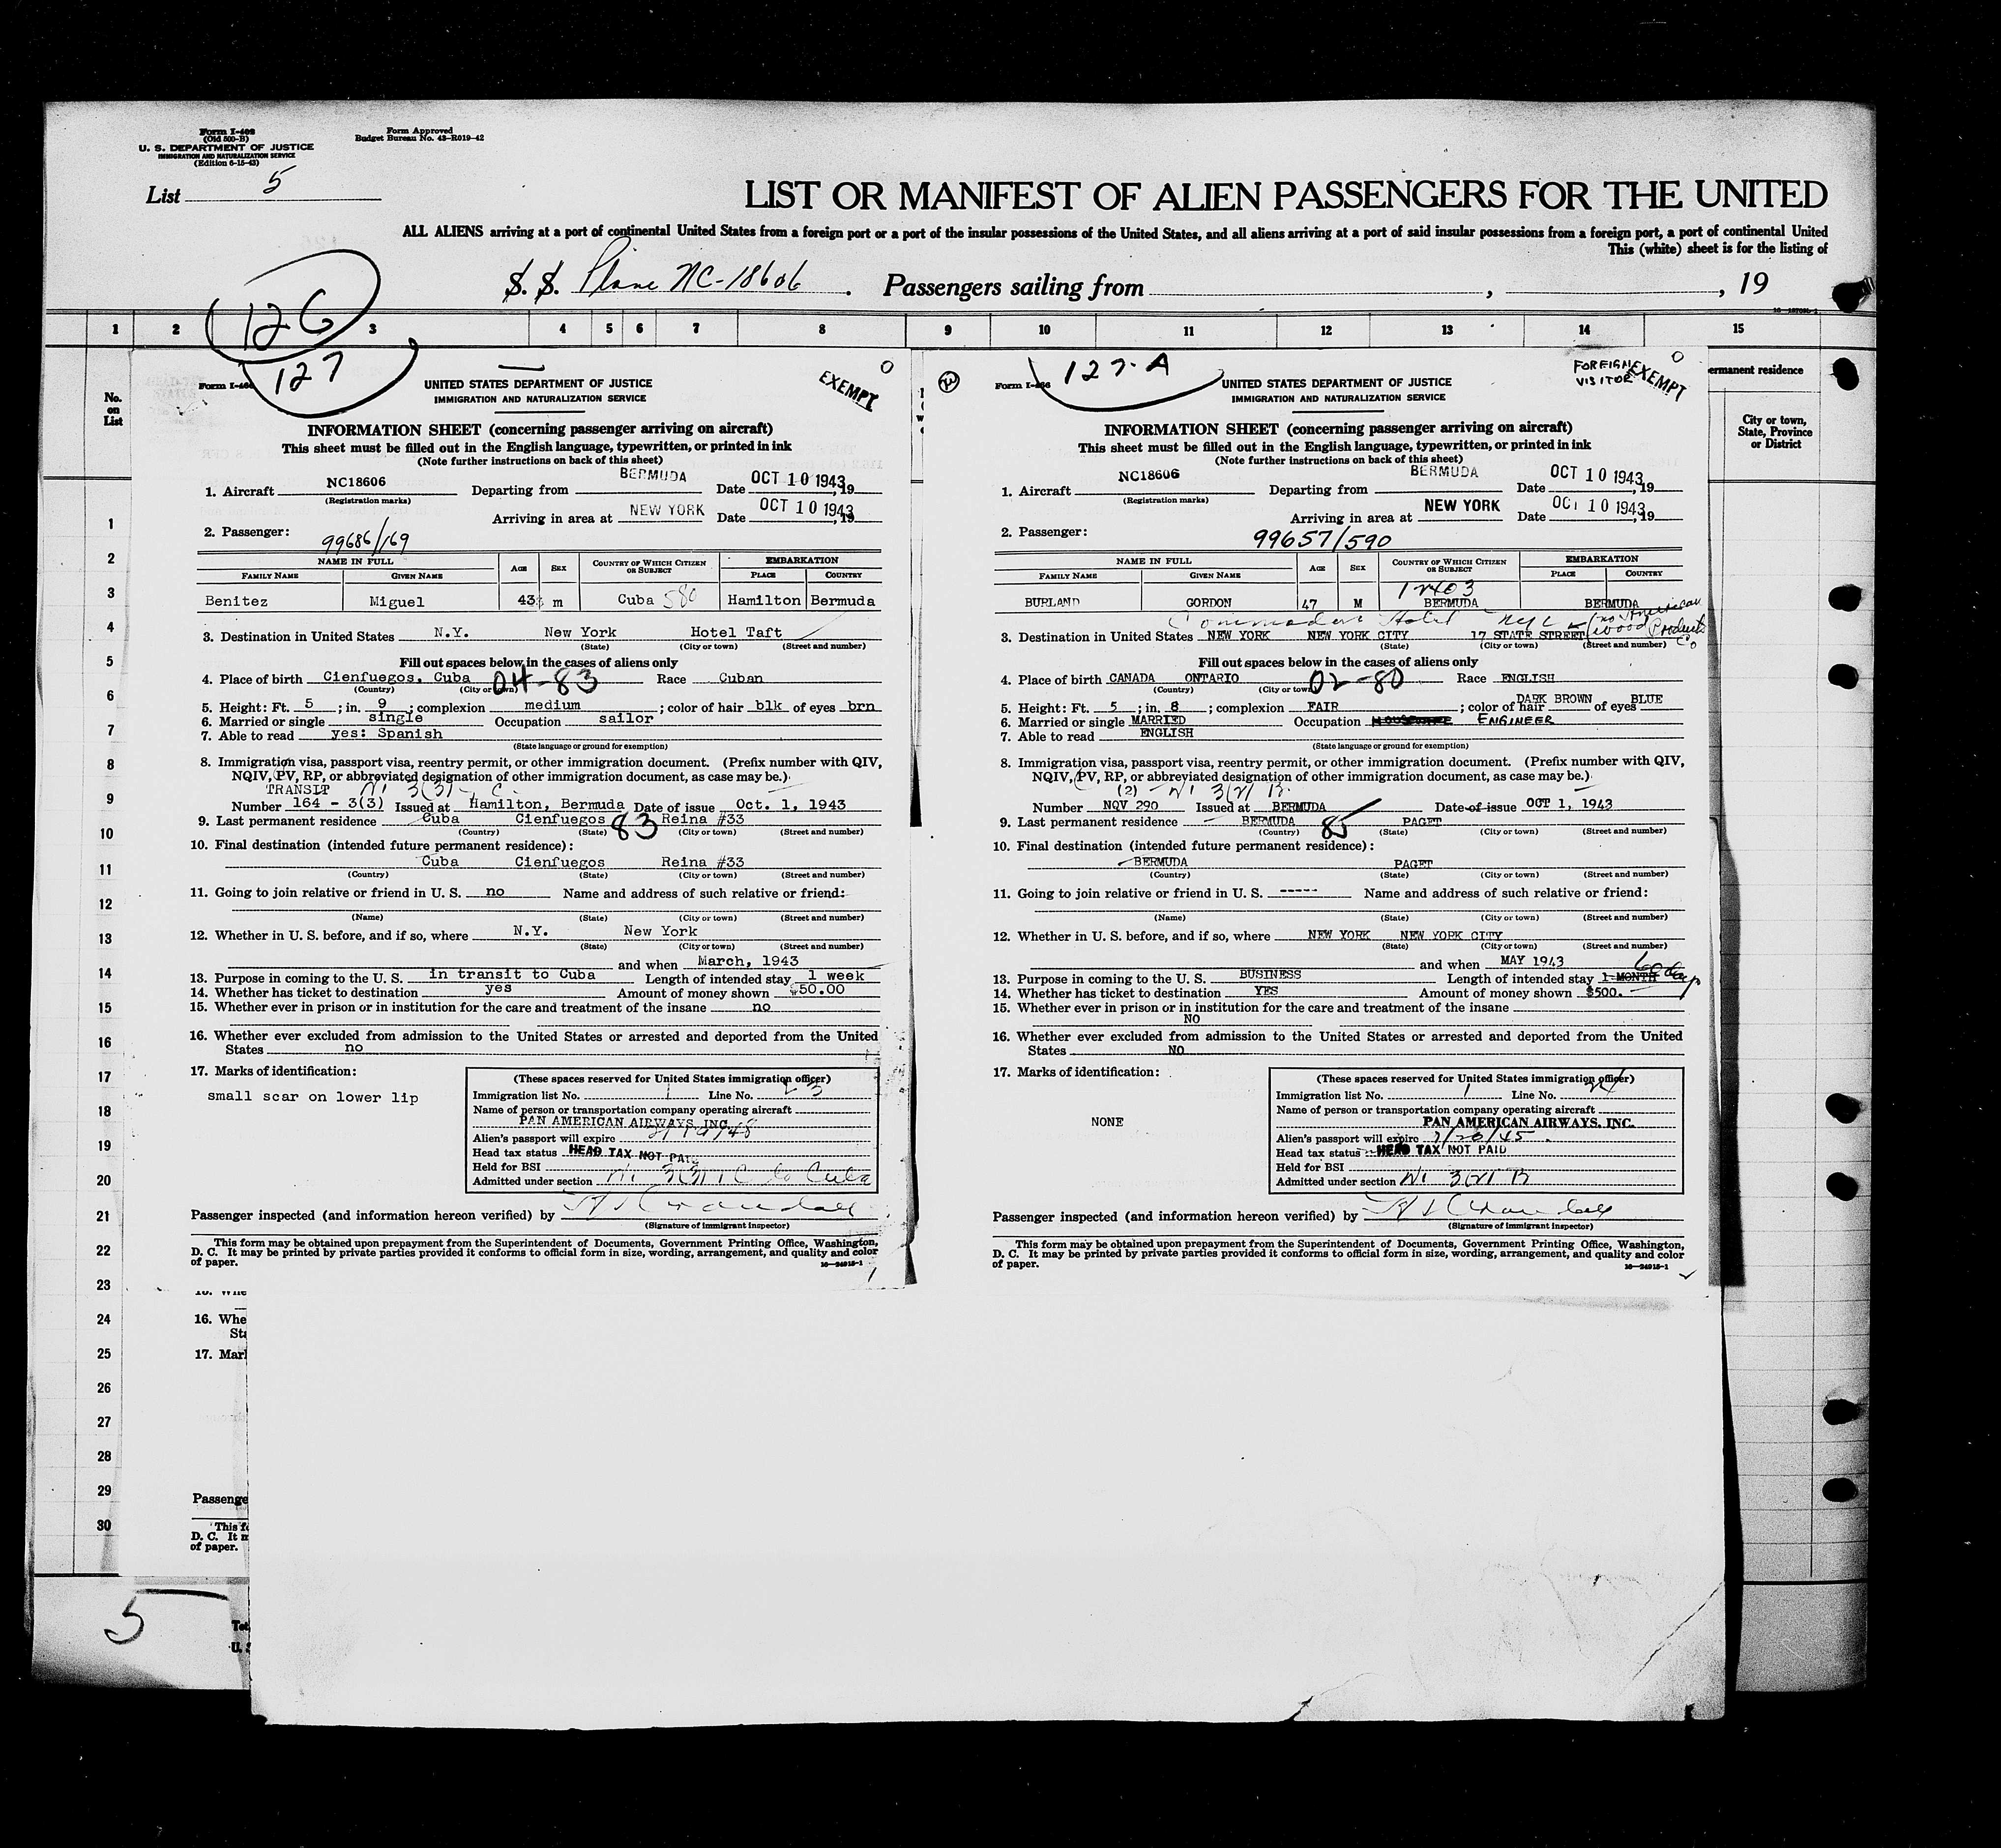 Form I-408
(Old 500-B)
U. S. DEPARTMENT OF JUSTICE
IMMIGRATION AND NATURALIZATION SERVICE
(Edition 6-15-43)
Form Approved
Budget Bureau No. 43-R019-42
List 5
LIST OR MANIFEST OF ALIEN PASSENGERS FOR THE UNITED
ALL ALIENS arriving at a port of continental United States from a foreign port or a port of the insular possessions of the United States, and all aliens arriving at a port of said insular possessions from a foreign port, a port of continental United
This (white) sheet is for the listing of
S. S. Plane NC-18606 . Passengers sailing from , , 19
126
1 2 3 4 5 6 7 8 9 10 11 12 13 14 15
No. on List
ermanent residence
City or town, State, Province or District
1
2
3
4
5
6
7
8
9
10
11
12
13
14
15
16
17
18
19
20
21
22
23
24
25
26
27
28
29
30
127
EXEMPT
UNITED STATES DEPARTMENT OF JUSTICE
IMMIGRATION AND NATURALIZATION SERVICE
INFORMATION SHEET (concerning passenger arriving on aircraft)
This sheet must be filled out in the English language, typewritten, or printed in ink
(Note further instructions on back of this sheet)
1. Aircraft NC18606 Departing from BERMUDA Date OCT 10 1943, 19
(Registration marks)
Arriving in area at NEW YORK Date OCT 10 1943, 19
2. Passenger: 99686/169
NAME IN FULL AGE SEX COUNTRY OF WHICH CITIZEN OR SUBJECT EMBARKATION
FAMILY NAME GIVEN NAME PLACE COUNTRY
Benitez Miguel 43 m Cuba 580 Hamilton Bermuda
3. Destination in United States N.Y. New York Hotel Taft
(State) (City or town) (Street and number)
Fill out spaces below in the cases of aliens only
4. Place of birth Cienfuegos, Cuba 04-83 Race Cuban
(Country) (City or town)
5. Height: Ft. 5 ; in. 9 ; complexion medium ; color of hair blk of eyes brn
6. Married or single single Occupation sailor
7. Able to read yes: Spanish
(State language or ground for exemption)
8. Immigration visa, passport visa, reentry permit, or other immigration document. (Prefix number with QIV,
NQIV, PV, RP, or abbreviated designation of other immigration document, as case may be.)
TRANSIT
Number 164 - 3(3) Issued at Hamilton, Bermuda Date of issue Oct. 1, 1943
9. Last permanent residence Cuba Cienfuegos 83 Reina #33
(Country) (State) (City or town) (Street and number)
10. Final destination (intended future permanent residence):
Cuba Cienfuegos Reina #33
(Country) (State) (City or town) (Street and number)
11. Going to join relative or friend in U. S. no Name and address of such relative or friend:
(Name) (State) (City or town) (Street and number)
12. Whether in U. S. before, and if so, where N.Y. New York
(State) (City or town) (Street and number)
and when March, 1943
13. Purpose in coming to the U. S. in transit to Cuba Length of intended stay 1 week
14. Whether has ticket to destination yes Amount of money shown $50.00
15. Whether ever in prison or in institution for the care and treatment of the insane no
16. Whether ever excluded from admission to the United States or arrested and deported from the United
States no
17. Marks of identification:
small scar on lower lip
(These spaces reserved for United States immigration officer)
Immigration list No. 1 Line No. 23
Name of person or transportation company operating aircraft
PAN AMERICAN AIRWAYS, INC.
Alien's passport will expire
Head tax status HEAD TAX NOT PAID
Held for BSI
Admitted under section 3(3) C to Cuba
Passenger inspected (and information hereon verified) by
(Signature of immigrant inspector)
This form may be obtained upon prepayment from the Superintendent of Documents, Government Printing Office, Washington,
D. C. It may be printed by private parties provided it conforms to official form in size, wording, arrangement, and quality and color
of paper.
16—24915-1
127-A
FOREIGN VISITOR
EXEMPT
UNITED STATES DEPARTMENT OF JUSTICE
IMMIGRATION AND NATURALIZATION SERVICE
INFORMATION SHEET (concerning passenger arriving on aircraft)
This sheet must be filled out in the English language, typewritten, or printed in ink
(Note further instructions on back of this sheet)
1. Aircraft NC18606 Departing from BERMUDA Date OCT 10 1943, 19
(Registration marks)
Arriving in area at NEW YORK Date OCT 10 1943, 19
2. Passenger: 99657/590
NAME IN FULL AGE SEX COUNTRY OF WHICH CITIZEN OR SUBJECT EMBARKATION
FAMILY NAME GIVEN NAME PLACE COUNTRY
BURLAND GORDON 47 M BERMUDA BERMUDA
Commodore Hotel NYC
3. Destination in United States NEW YORK NEW YORK CITY 17 STATE STREET (no American Wood Products Co
(State) (City or town) (Street and number)
Fill out spaces below in the cases of aliens only
4. Place of birth CANADA ONTARIO 02-80 Race ENGLISH
(Country) (City or town)
5. Height: Ft. 5 ; in. 8 ; complexion FAIR ; color of hair DARK BROWN of eyes BLUE
6. Married or single MARRIED Occupation ENGINEER
7. Able to read ENGLISH
(State language or ground for exemption)
8. Immigration visa, passport visa, reentry permit, or other immigration document. (Prefix number with QIV,
NQIV, PV, RP, or abbreviated designation of other immigration document, as case may be.)
(2)
Number NQV 290 Issued at BERMUDA Date of issue OCT 1, 1943
9. Last permanent residence BERMUDA 85 PAGET
(Country) (State) (City or town) (Street and number)
10. Final destination (intended future permanent residence):
BERMUDA PAGET
(Country) (State) (City or town) (Street and number)
11. Going to join relative or friend in U. S. ----- Name and address of such relative or friend:
(Name) (State) (City or town) (Street and number)
12. Whether in U. S. before, and if so, where NEW YORK NEW YORK CITY
(State) (City or town) (Street and number)
and when MAY 1943
13. Purpose in coming to the U. S. BUSINESS Length of intended stay 1 MONTH 60 days
14. Whether has ticket to destination YES Amount of money shown $500.
15. Whether ever in prison or in institution for the care and treatment of the insane
NO
16. Whether ever excluded from admission to the United States or arrested and deported from the United
States NO
17. Marks of identification:
NONE
(These spaces reserved for United States immigration officer)
Immigration list No. 1 Line No. 24
Name of person or transportation company operating aircraft
PAN AMERICAN AIRWAYS, INC.
Alien's passport will expire
Head tax status HEAD TAX NOT PAID
Held for BSI
Admitted under section 3(2) B
Passenger inspected (and information hereon verified) by
(Signature of immigrant inspector)
This form may be obtained upon prepayment from the Superintendent of Documents, Government Printing Office, Washington,
D. C. It may be printed by private parties provided it conforms to official form in size, wording, arrangement, and quality and color
of paper.
16—24915-1
16. Whe
Sta
17. Mark
Passenge
This fo
D. C. It m
of paper.
5
Tot
U. S